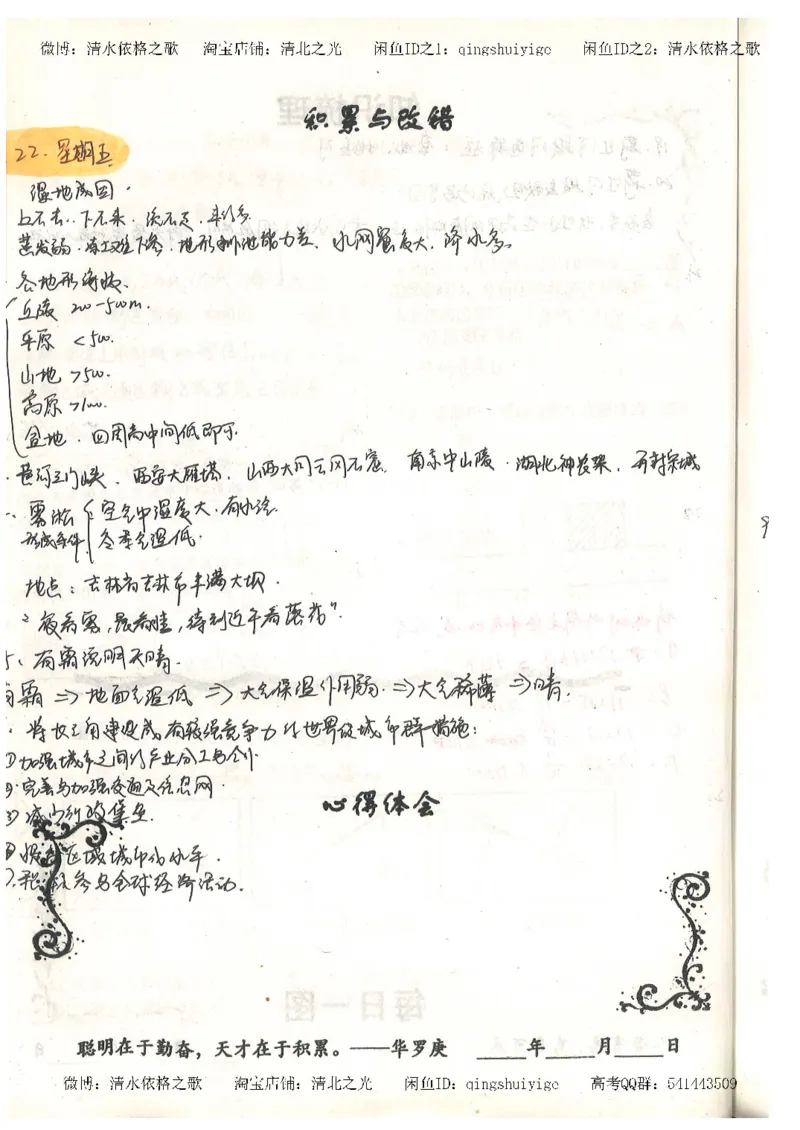 微博：清水依格之歌 淘宝店铺：清北之光 闲鱼ID之1：qingshuiyige 闲鱼ID之2：清水依格之歌
积累与改错
22. 星期五
湿地成因.
上不去. 下不来. 流不走. 来得多
蒸发弱. 冻土难下渗. 地形排泄能力差. 水网密度大. 降水多.
各地形海拔.
丘陵 200-500m.
平原 <500.
山地 >500.
高原 >1000.
盆地. 四周高中间低即可.
黄河三门峡. 西安大雁塔. 山西大同云冈石窟. 南京中山陵. 湖北神农架. 开封宋城
雾凇 空气中湿度大. 有水汽.
形成条件 冬季气温低.
地点：吉林省吉林市丰满大坝.
"夜看雾, 晨看挂, 待到近午看落花".
有霜说明天晴.
有霜 => 地面气温低 => 大气保温作用弱. => 大气稀薄 => 晴.
将长三角建设成有较强竞争力的世界级城市群措施:
①加强城乡之间的产业分工与合作
②完善与加强交通及信息网.
③减少行政壁垒.
④提高区域城市化水平.
积极参与全球经济活动.
心得体会
聪明在于勤奋，天才在于积累。——华罗庚 ____年____月____日
微博：清水依格之歌 淘宝店铺：清北之光 闲鱼ID：qingshuiyige 高考QQ群：541443509